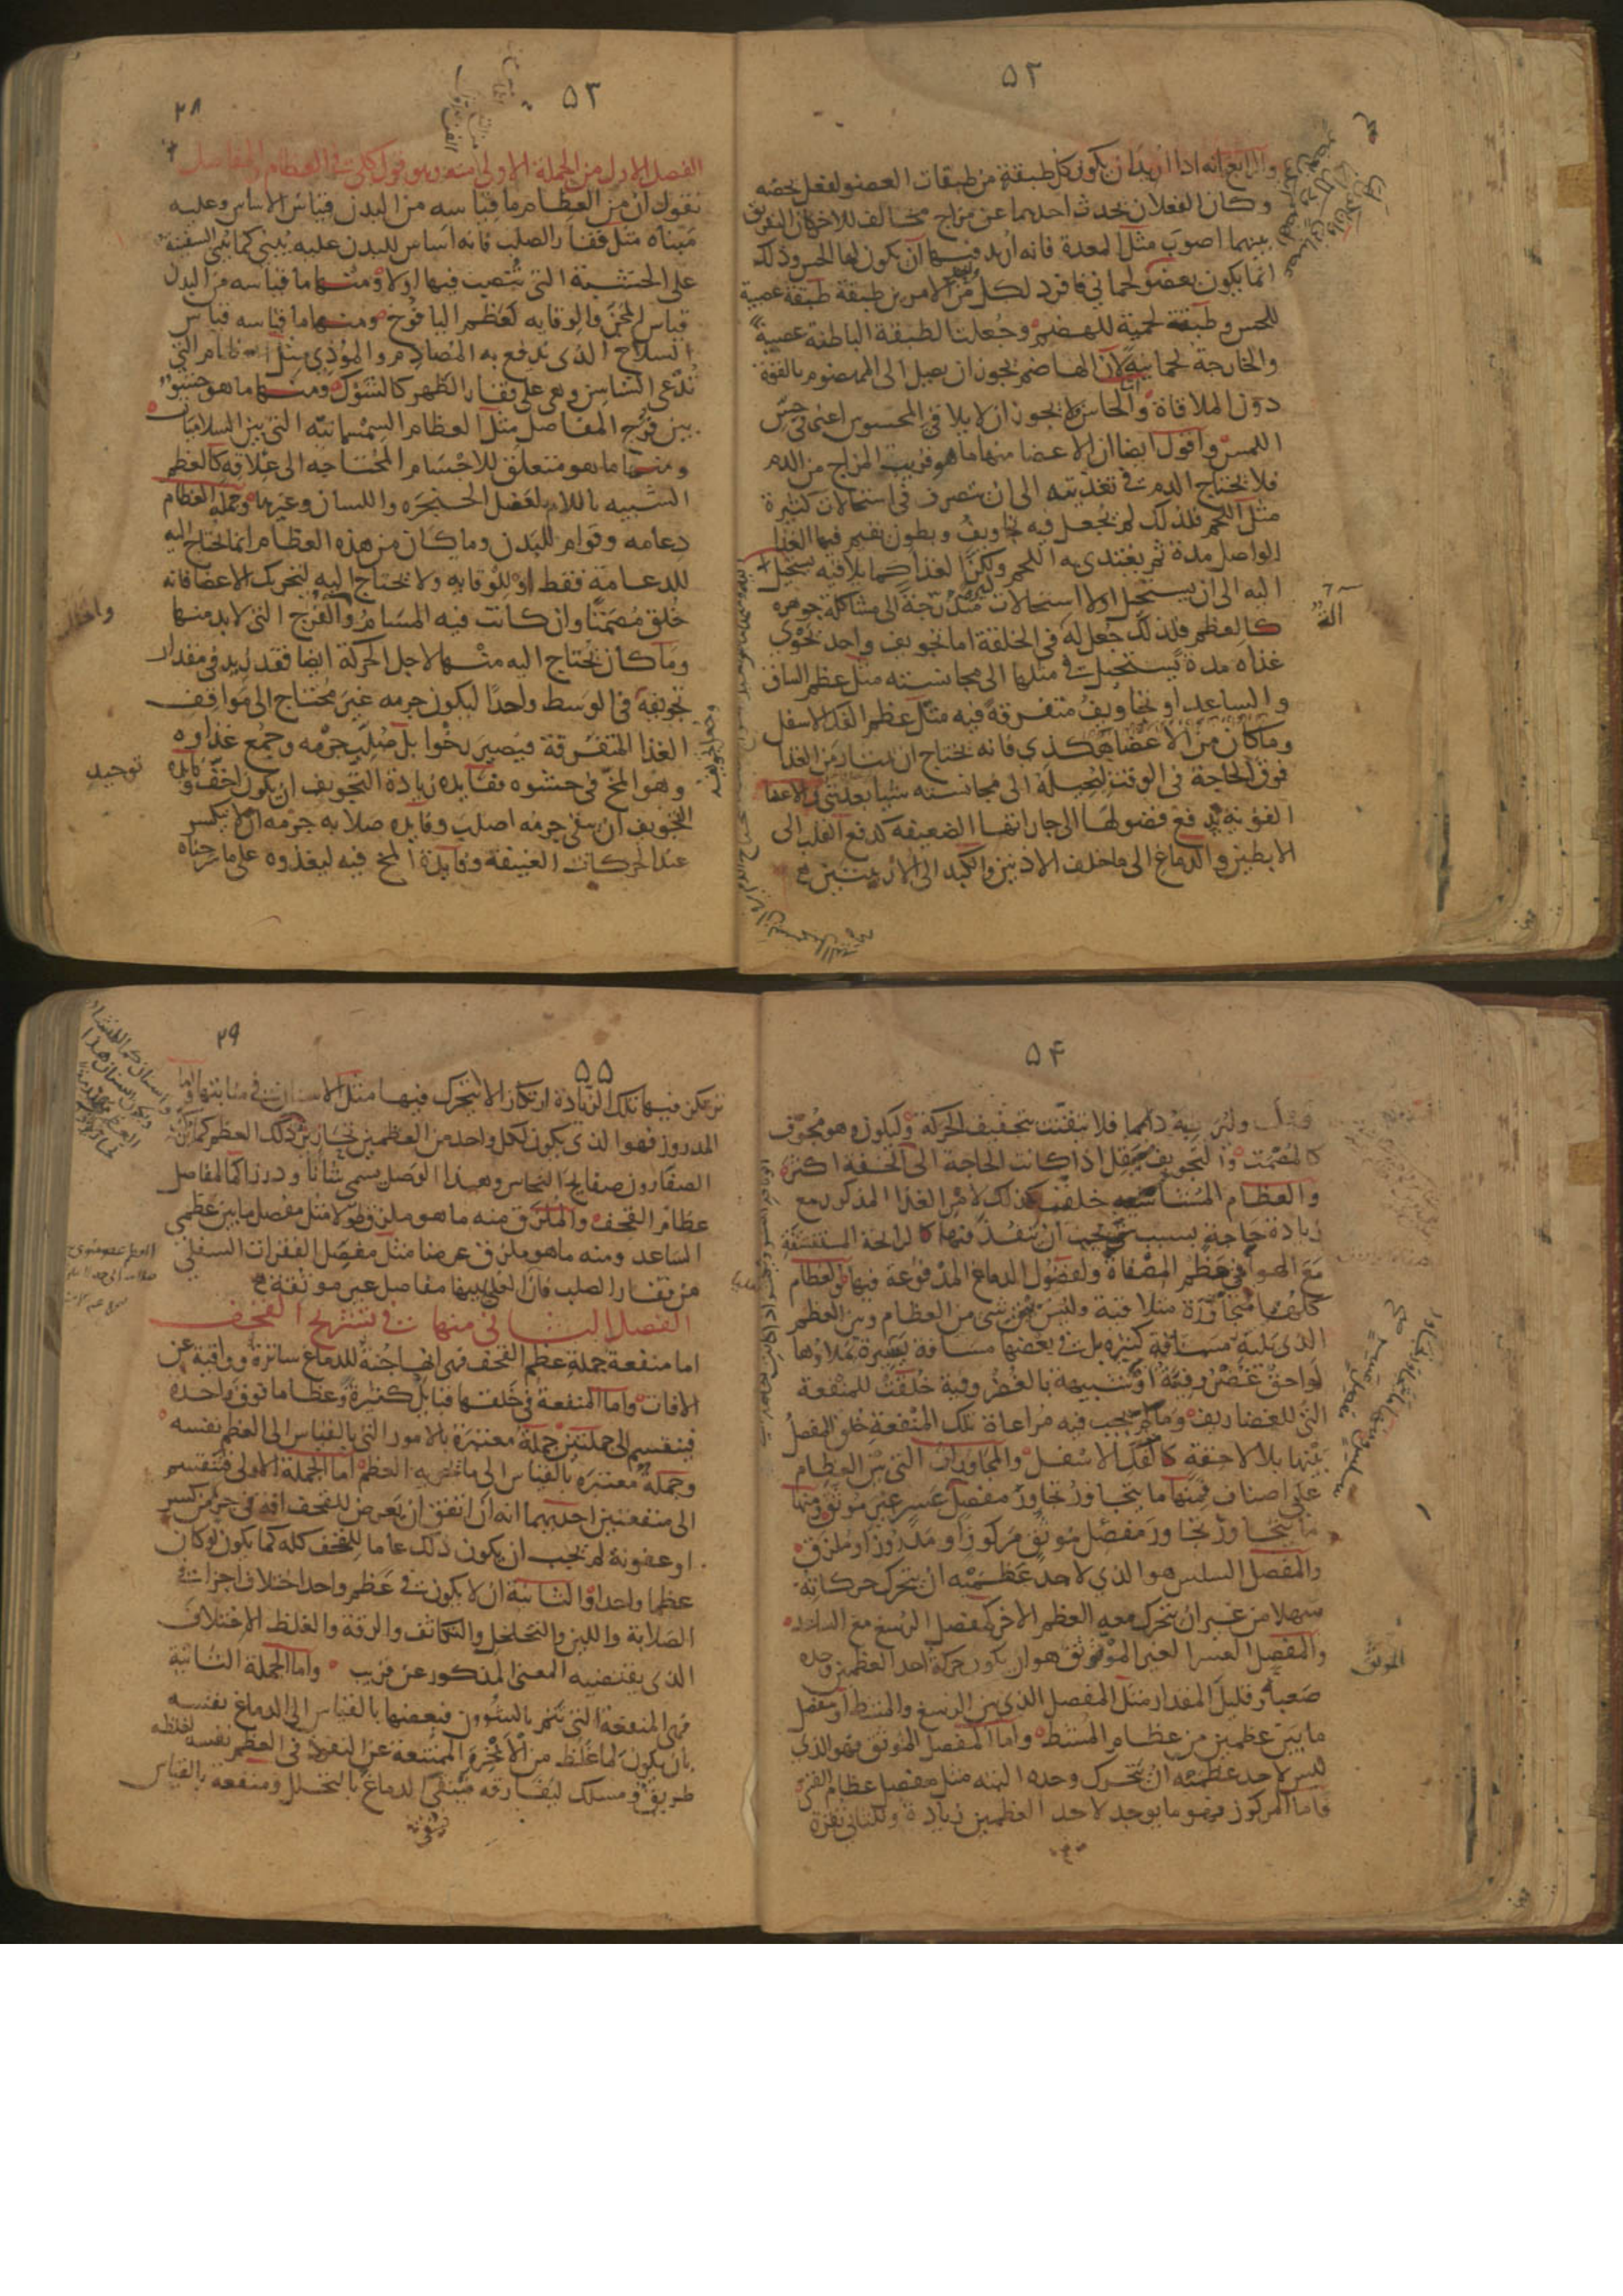 ٥٢
والرابع انه اذا اريد ان يكون كل طبقة من طبقات العضو لفعل يخصه
وكان الفعلان يحدث احدهما عن مزاج مخالف للاخر كان التفريق
بينهما اصوب مثل المعدة فانه اريد فيها ان يكون لها الحس وذلك
انما يكون بعضو لحماني فافرد لكل من الامرين طبقة طبقة عصبية
للحس وطبقة لحمية للهضم وجعلنا لطبقة الباطنة عصبية
والخارجة لحمانية لان الهاضم يجوز ان يصل الى المهضوم بالقوة
دون الملاقاة والحاس لا يجوز ان لا يلاقي المحسوس اعني في حس
اللمس واقول ايضا ان الاعضا منها ما هو قريب المزاج من الدم
فلا يحتاج الدم في تغذيته الى ان يتصرف في استحالات كثيرة
مثل اللحم فلذلك لم يجعل فيه تجاويف وبطون يقيم فيها الغذا
الواصل مدة ثم يغتذي به اللحم ولكن الغذا كما يلاقيه يستحيل
اليه الى ان يستحيل اولا استحالات متدرجة الى مشاكلة جوهره
كالعظم فلذلك جعل له في الخلقة اما تجويف واحد يحوي
غذاه مدة يستحيل في مثلها الى مجانسته مثل عظم الساق
والساعد او تجاويف متفرقة فيه مثل عظم الفك الاسفل
وما كان من الاعضا هكذي فانه يحتاج ان يمتار من الغذا
فوق الحاجة في الوقت ليحيله الى مجانسته شيا بعد شي والاعضا
القوية يدفع فضولها الى جاراتها الضعيفه كدفع القلب الى
الابطين والدماغ الى ما خلف الاذنين والكبد الى الاربيتين
٥٣
٢٨
الفصل الاول من الجملة الاولى منه وهو قول كلي في العظام والمفاصل
نقول ان من العظام ما قياسه من البدن قياس الاساس وعليه
مبناه مثل فقار الصلب فانه اساس للبدن عليه يبنى كما يبنى السفينة
على الخشبة التي تنصب فيها اولا ومنها ما قياسه من البدن
قياس المجن والوقايه كعظم اليافوخ ومنها ما قياسه قياس
السلاح الذي يدفع به المصادم والموذي مثل العظام التي
تدعى السناسن وهي على فقار الظهر كالشوك ومنها ما هو حشو
بين فرج المفاصل مثل العظام السمسمانيه التي بين السلاميات
ومنها ما هو متعلق للاجسام المحتاجه الى علاقه كالعظم
الشبيه باللام لعضل الحنجره واللسان وغيرها وجملة العظام
دعامه وقوام للبدن وما كان من هذه العظام انما يحتاج اليه
للدعامة فقط او للوقايه ولا يحتاج اليه لتحريك الاعضا فانه
خلق مصمتا وان كانت فيه المسام والفرج التي لا بد منها
وما كان يحتاج اليه منها لاجل الحركة ايضا فقد زيد في مقدار
تجويفه في الوسط واحدا ليكون جرمه غير محتاج الى مواقف
الغذا المتفرقة فيصير رخوا بل صلب جرمه وجمع غذاوه
وهو المخ في حشوه ففايده زيادة التجويف ان يكون اخف وفايده
التجويف ان يبقى جرمه اصلب وفايده صلابه جرمه ان لا ينكسر
عند الحركات العنيفة وفايدة المخ فيه ليغذوه على ما شرحناه
توحيد
٥٤
قبل وليرطبه دائما فلا يتفتت بتجفيف الحركة وليكون وهو مجوف
كالمصمت والتجويف يقل اذا كانت الحاجة الى الخفة اكثر
والعظام المشاشيه خلقت كذلك لامر الغذا المذكور مع
زيادة حاجة بسبب شي يجب ان ينفذ فيها كالرائحة المستنشقة
مع الهوا في عظم المصفاة ولفضول الدماغ المدفوعة فيها والعظام
كلها متجاورة متلاقية وليس بين شي من العظام وبين العظم
الذي يليه مسافة كثيره بل في بعضها مسافة يسيرة تملاوها
لواحق غضروفية او شبيهة بالغضروفية خلقت للمنفعة
التي للغضاريف وما لم يجب فيه مراعاة تلك المنفعة خلق المفصل
بينها بلا لاحقة كالفك الاسفل والمجاورات التي بين العظام
على اصناف فمنها ما يتجاور تجاور مفصل عسر غير موثق ومنها
ما يتجاور تجاور مفصل موثق مركوز او مدروز او ملزق
والمفصل السلس هو الذي لاحد عظميه ان يتحرك حركاته
سهلا من غير ان يتحرك معه العظم الاخر كمفصل الرسغ مع الساعد
والمفصل العسر الغير الموثق هو ان يكون حركة احد العظمين وحده
صعبا وقليل المقدار مثل المفصل الذي بين الرسغ والمشط او مفصل
ما بين عظمين من عظام المشط واما المفصل الموثق فهو الذي
ليس لاحد عظميه ان يتحرك وحده البته مثل مفصل عظام القس
واما المركوز فهو ما يوجد لاحد العظمين زيادة وللثاني نقرة
الموثق
٥٥
٢٩
ترتكز فيها تلك الزيادة ارتكازا لا يتحرك فيها مثل الاسنان في منابتها واما
المدروز فهو الذي يكون لكل واحد من العظمين تحازيز كذلك العظم كما
الصفارون صفايح النحاس وهذا الوصل يسمى شانا ودرزا كالمفاصل
عظام القحف والملزق منه ما هو ملزق طولا مثل مفصل ما بين عظمي
الساعد ومنه ما هو ملزق عرضا مثل مفصل الفقرات السفلى
من فقار الصلب فان العلى بينها مفاصل غير موثقة
الفصل الثاني منها في تشريح القحف
اما منفعة جملة عظم القحف فهي انها جنة للدماغ ساترة وواقية عن
الافات واما المنفعة في خلقتها قبايل كثيرة وعظاما فوق واحدة
فينقسم الى جملتين جملة معتبرة بالامور التي بالقياس الى العظم نفسه
وجملة معتبرة بالقياس الى ما يحويه العظم اما الجملة الاولى فتنقسم
الى منفعتين احديهما انه ان اتفق ان يعرض للقحف افة في جزء من كسر
او عفونة لم يجب ان يكون ذلك عاما للقحف كله كما يكون لو كان
عظما واحدا والثانية ان لا يكون في عظم واحد اختلاف اجزا في
الصلابة واللين والتخلخل والتكاثف والرقة والغلظ الاختلاف
الذي يقتضيه المعنى المذكور عن قريب واما الجملة الثانية
فهي المنفعة التي تتم بالشوون فبعضها بالقياس الى الدماغ نفسه
بان يكون لما غلظ من الابخرة الممتنعة عن النفوذ في العظم نفسه لغلظه
طريق ومسلك ليفارقه فينقى الدماغ بالتحلل ومنفعة بالقياس